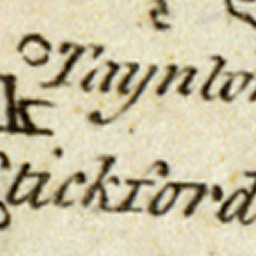 Taynlo
k
Stickford